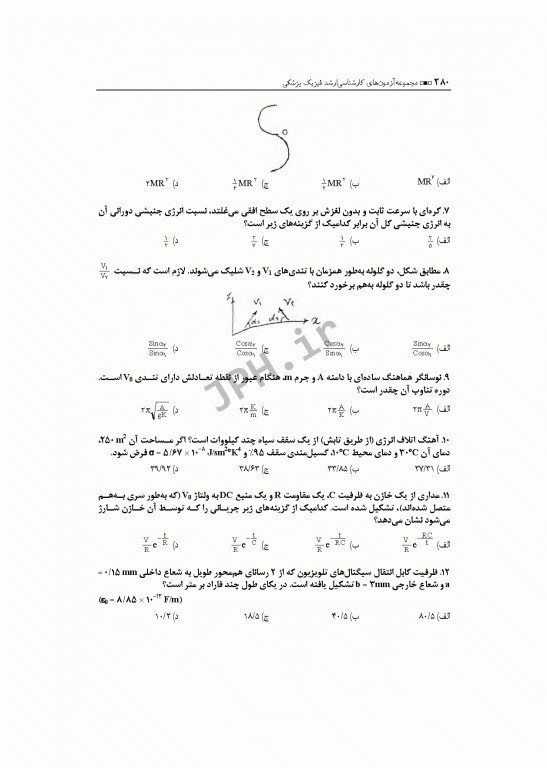 ۲۸۰ □■□ مجموعه‌آزمون‌های کارشناسی‌ارشد فیزیک پزشکی
o
الف) MR۲ ب) ۱/۲ MR۲ ج) ۱/۴ MR۲ د) ۲MR۲
۷. کره‌ای با سرعت ثابت و بدون لغزش بر روی یک سطح افقی می‌غلتد، نسبت انرژی جنبشی دورانی آن
به انرژی جنبشی کل آن برابر کدامیک از گزینه‌های زیر است؟
الف) ۲/۵ ج) ۲/۷
۸. مطابق شکل، دو گلوله به‌طور همزمان با تندی‌های V1 و V2 شلیک می‌شوند. لازم است که نسبت V۱/V۲
چقدر باشد تا دو گلوله به‌هم برخورد کنند؟
z V₁ V₂ α₁ α₂ x
الف) Sinα۲/Cosα۱ ب) Cosα۲/Sinα۱ ج) Cosα۲/Cosα۱ د) Sinα۲/Sinα۱
۹. نوسانگر هماهنگ ساده‌ای با دامنه A و جرم m، هنگام عبور از نقطه تعادلش دارای تندی V0 است.
دوره تناوب آن چقدر است؟
الف) ۲π A/V ب) ۲π A/K ج) ۲π K/m د) ۲π √A/gK
۱۰. آهنگ اتلاف انرژی (از طریق تابش) از یک سقف سیاه چند کیلووات است؟ اگر مساحت آن ۲۵۰ m2،
دمای آن ۳۰°C و دمای محیط ۱۰°C، گسیل‌مندی سقف ۹۵٪ و σ = ۵/۶۷ × ۱۰−۸ J/sm2°K4 فرض شود.
الف) ۲۷/۳۱ ب) ۳۳/۸۵ ج) ۳۸/۶۳ د) ۳۹/۹۲
۱۱. مداری از یک خازن به ظرفیت C، یک مقاومت R و یک منبع DC به ولتاژ V0 (که به‌طور سری به‌هم
متصل شده‌اند)، تشکیل شده است. کدامیک از گزینه‌های زیر جریانی را که توسط آن خازن شارژ
می‌شود نشان می‌دهد؟
الف) V/R e−RC/t ب) V/R e−t/RC ج) V/R e−t/C د) V/R e−t/R
۱۲. ظرفیت کابل انتقال سیگنال‌های تلویزیون که از ۲ رسانای هم‌محور طویل به شعاع داخلی ۰/۱۵ mm =
a و شعاع خارجی b = ۳mm تشکیل یافته است. در یکای طول چند فاراد بر متر است؟
(ε0 = ۸/۸۵ × ۱۰−۱۲ F/m)
الف) ۸۰/۵ ب) ۴۰/۵ ج) ۱۸/۵ د) ۱۰/۲
JPH.ir